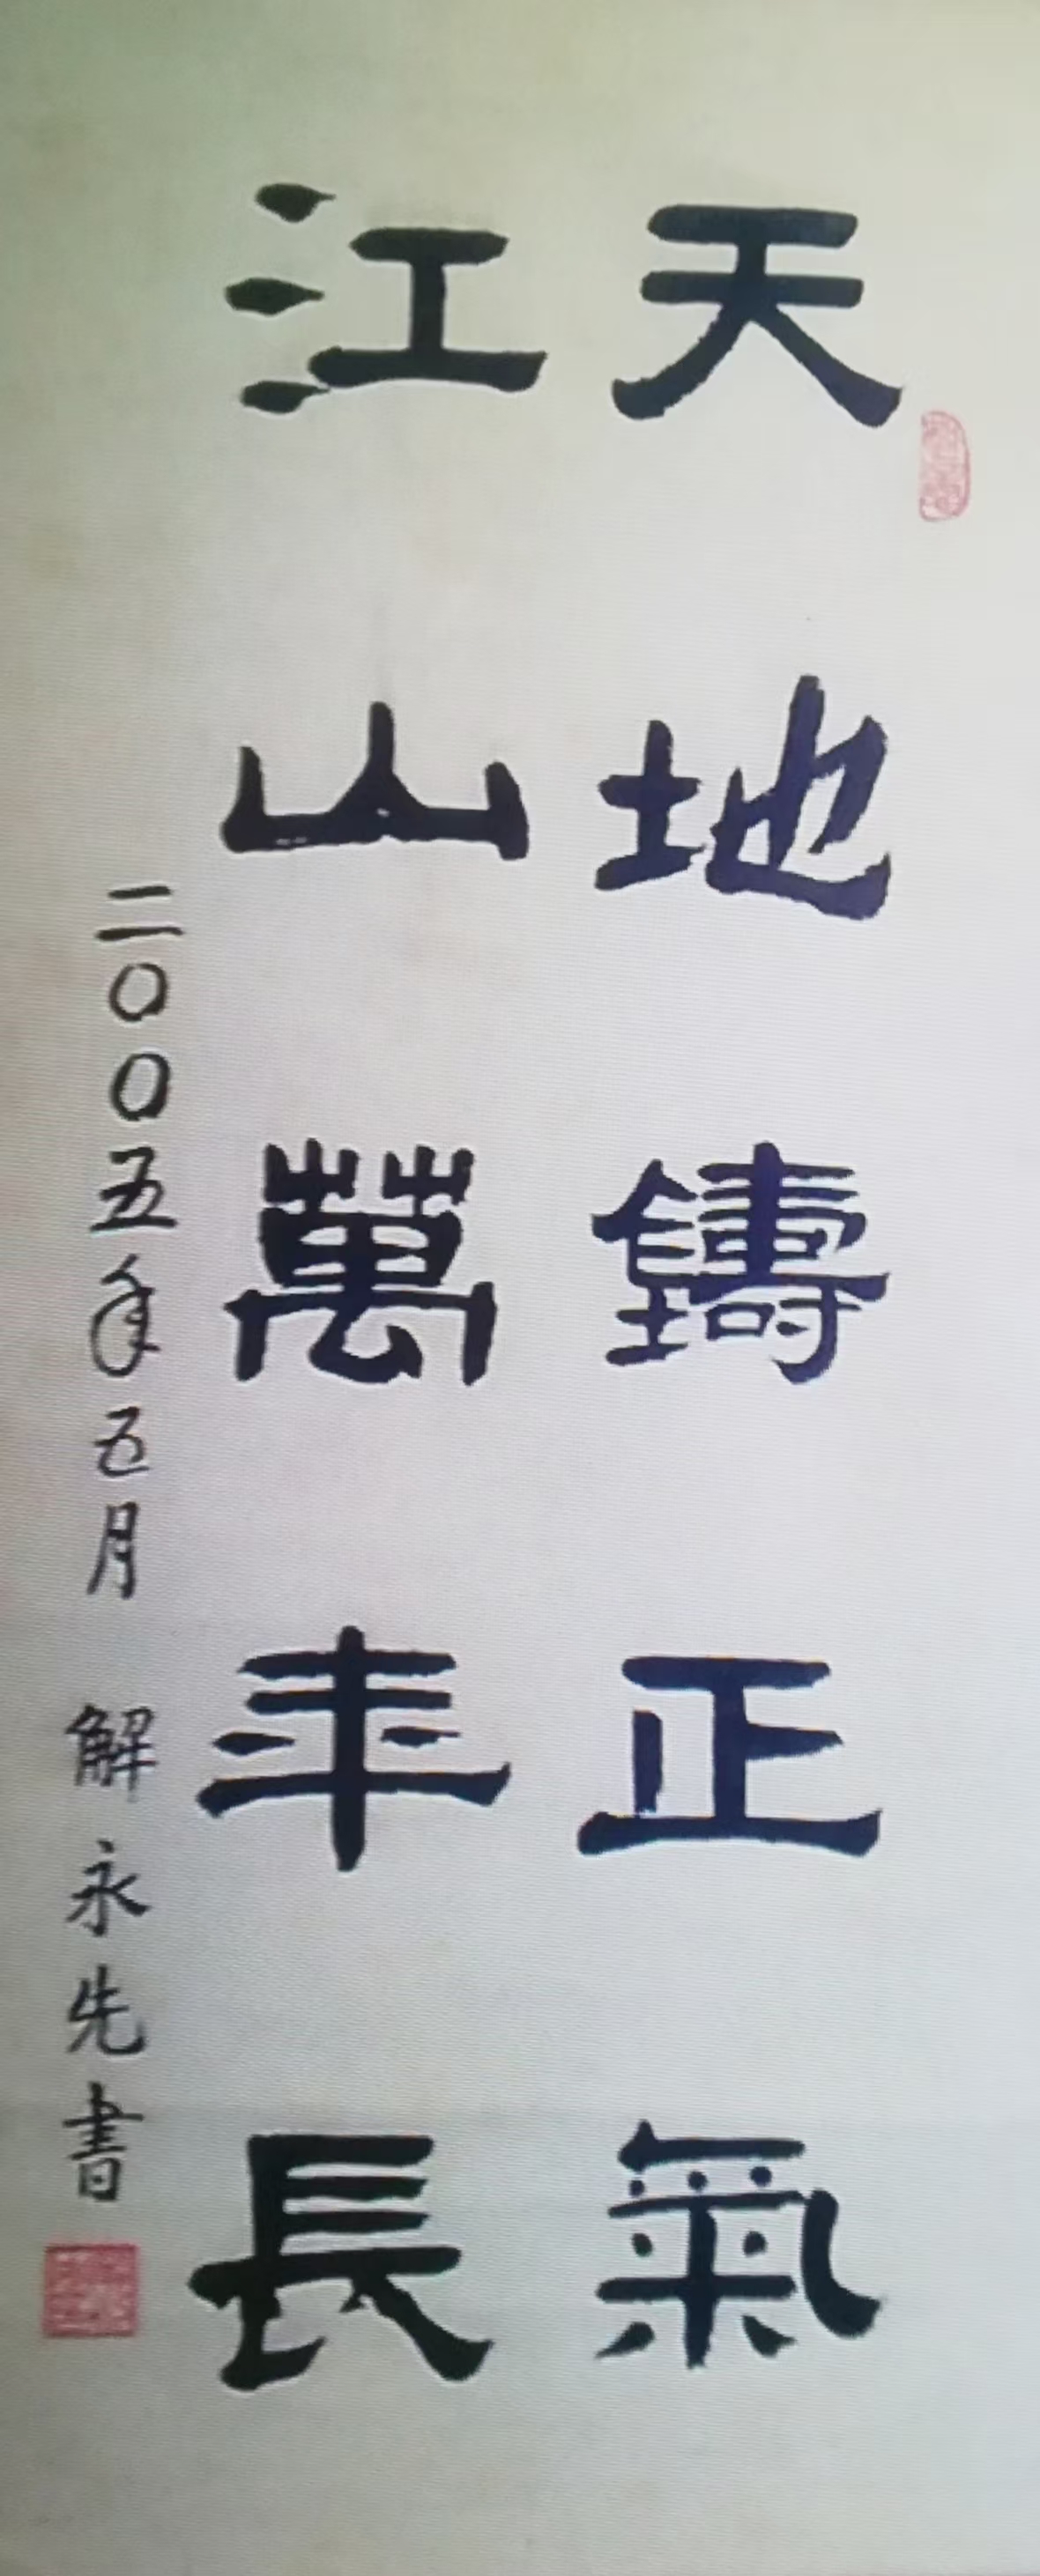 天地鑄正氣
江山萬年長
二〇〇五年五月 解永先書